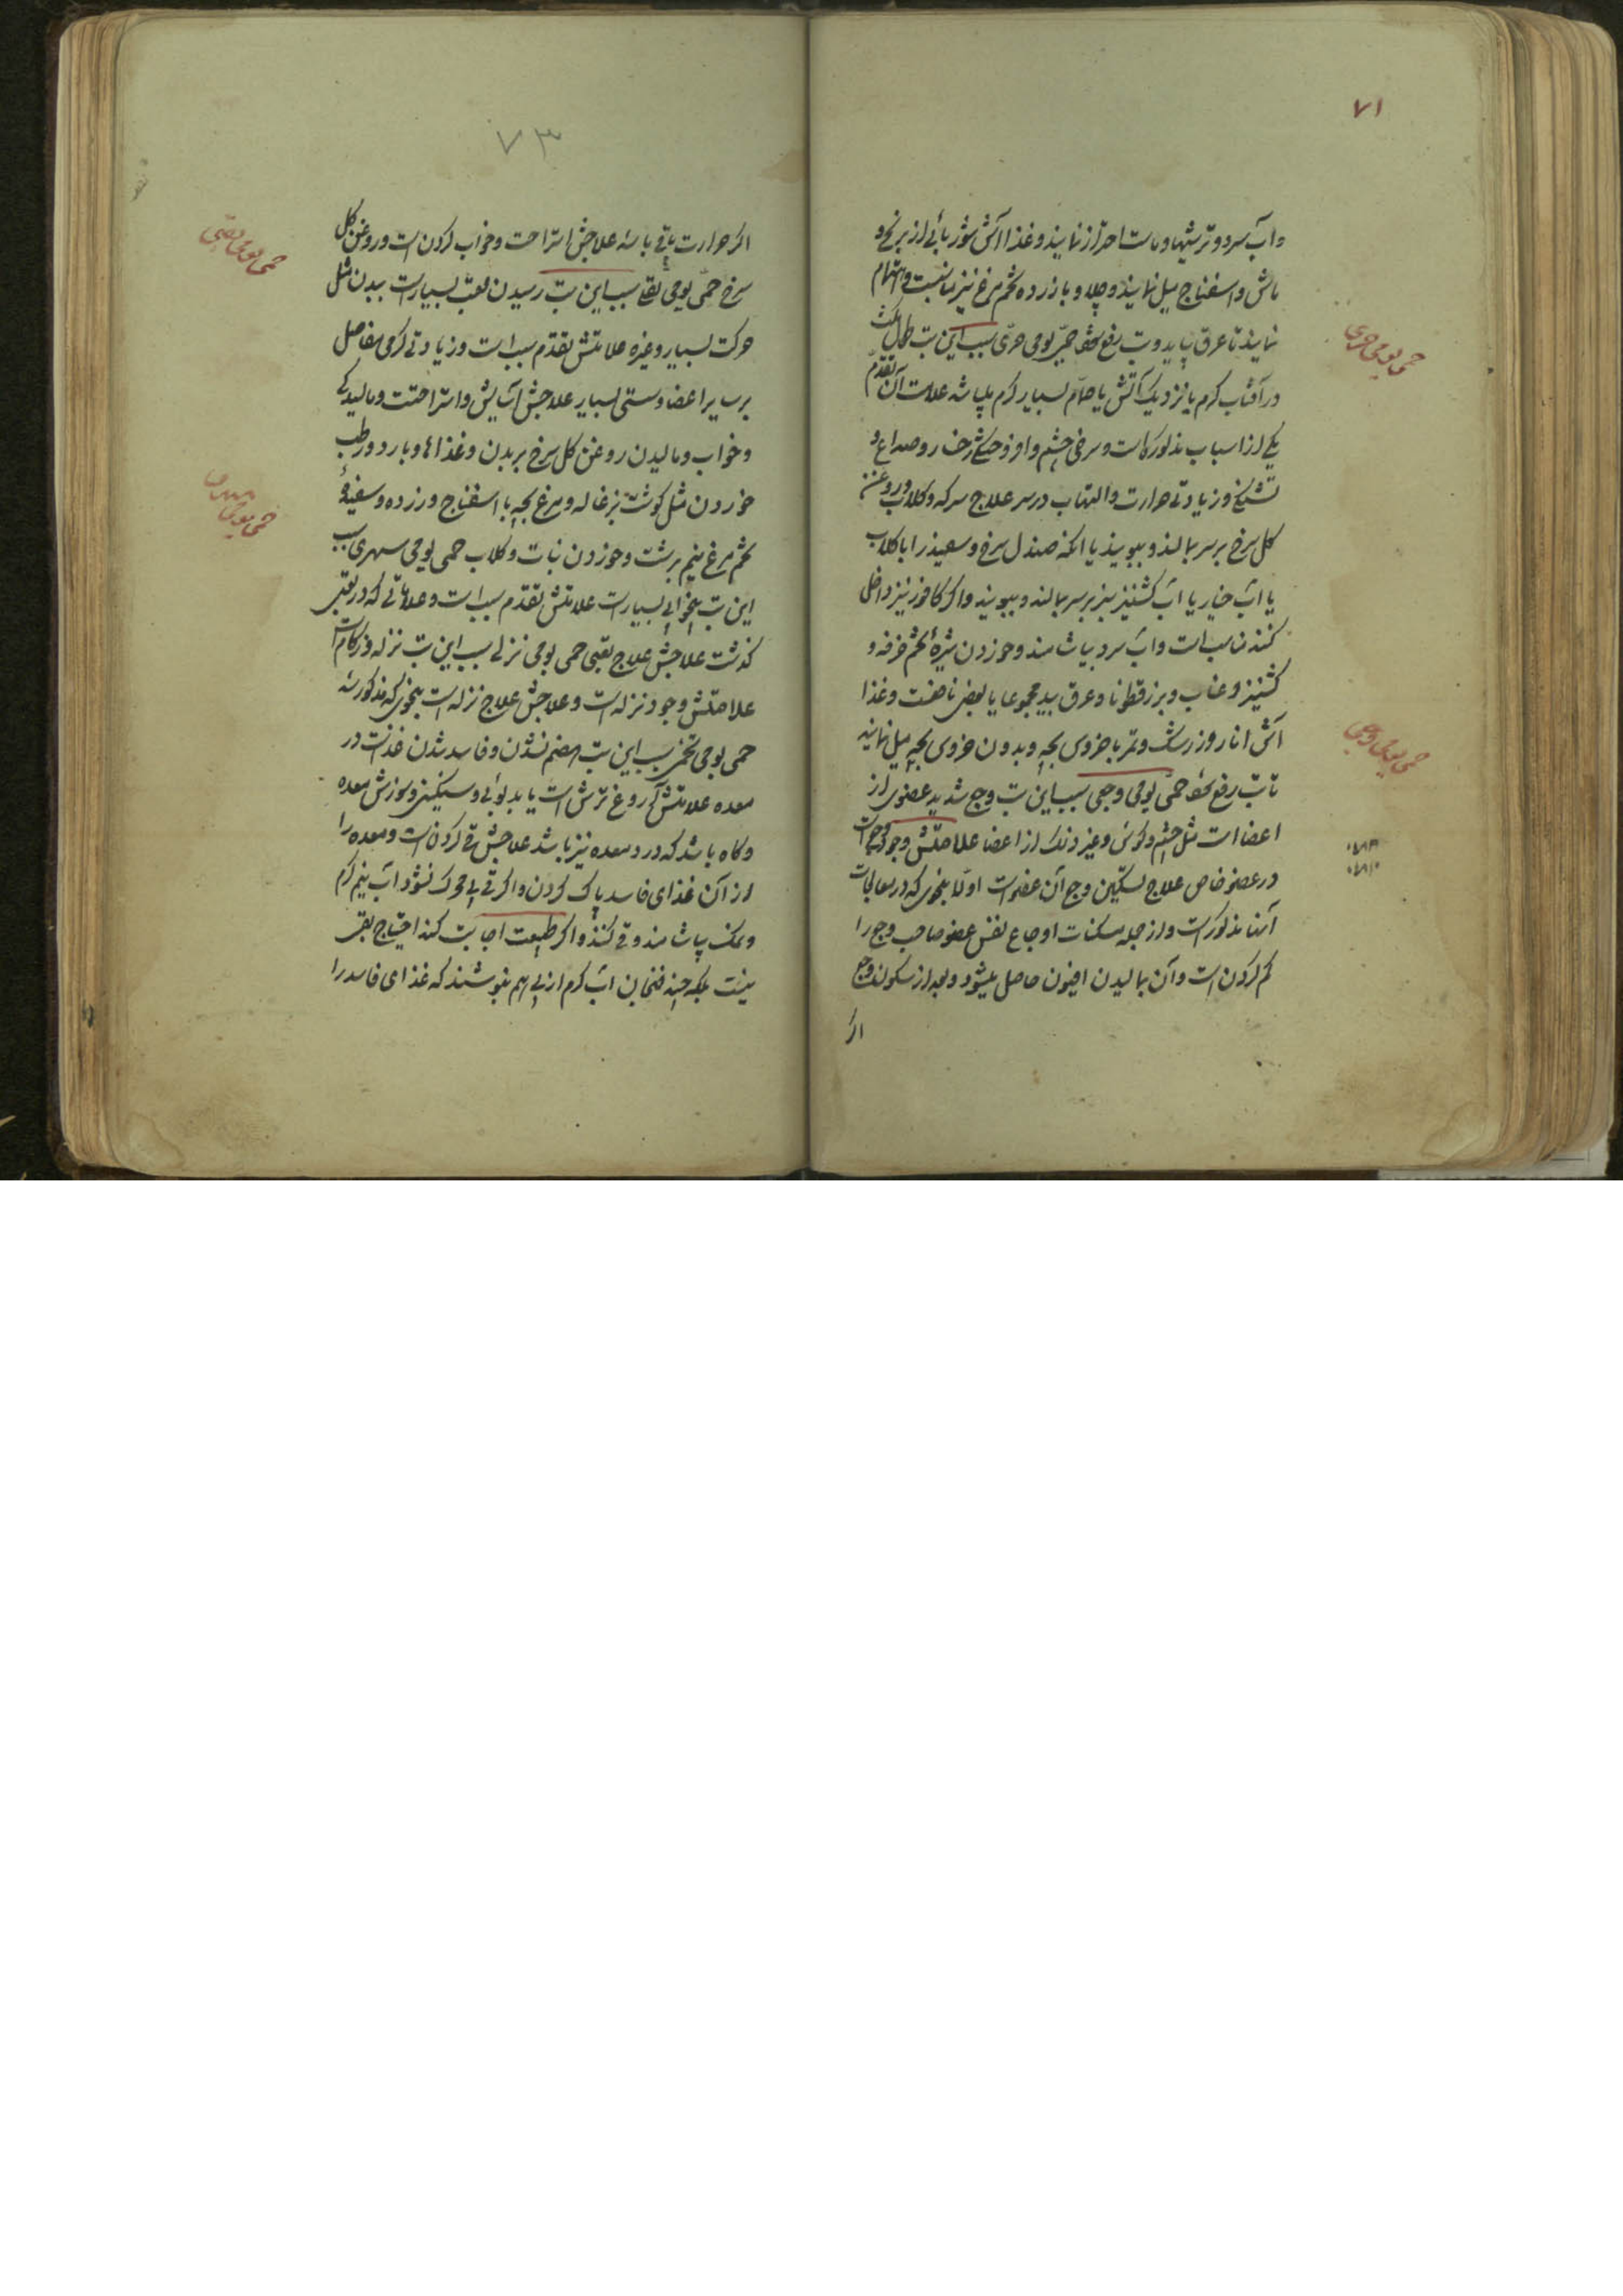 ۷۱
و آب سرد و ترشیها و ماست احتراز نمایند و غذا آش شوربائی از برنج و
ماش و اسفناج میل نمایند و چلاو با زرده تخم مرغ نیز مناسبت و اهتمام
نمایند تا عرق بیاید و تب رفع شود حمی یومی حری سبب این تب مکث
در آفتاب گرم یا نزدیک آتش یا حمام بسیار گرم میباشد علامت آن تقدم
یکی از اسباب مذکور است و سرخی چشم و رخسار و صداع و
تشنگی و زیادتی حرارت و التهاب در سر علاج سرکه و گلاب و روغن
گل سرخ بر سر بمالند و ببویند یا آنکه صندل سرخ و سفید را با گلاب
یا آب خیار یا آب کشنیز سبز بر سر بمالند و ببویند و اگر کافور نیز داخل
کنند مناسب است و آب سرد بیاشامند و خوردن شیرهٔ تخم خرفه و
کشنیز و عناب و بزرقطونا و عرق بید مجموعا یا بعضی نافعست و غذا
آش انار و زرشک و تمر با خروس بچه و بدون خروس بچه میل نمایند
تا تب رفع شود حمی یومی وجعی سبب این تب وجع شدید عضوی از
اعضا است مثل چشم و گوش و غیر ذلک از اعضا علامتش وجود وجع است
در عضو خاص علاج تسکین وجع آن عضو است اولا بنحوی که در معالجات
آنها مذکور است و از جمله مسکنات اوجاع نفس عضو صاحب وجع را
گم کردن است و آن بمالیدن افیون حاصل میشود و بعد از سکون وجع
اگر
حمی یومی حری
حمی یومی وجعی
۷۳
اگر حرارت باقی باشد علاجش استراحت و خواب کردن است و روغن گل
سرخ حمی یومی تعبی سبب این تب رسیدن تعب بسیار است ببدن مثل
حرکت بسیار و غیره علامتش تقدم سبب است و زیادتی گرمی مفاصل
بر سایر اعضا و سستی بسیار علاجش آسایش و استراحتست و مالیدگی
و خواب و مالیدن روغن گل سرخ بر بدن و غذاهای بارد و رطب
خوردن مثل گوشت بزغاله و مرغ بچه با اسفناج و زرده و سفیدهٔ
تخم مرغ نیم برشت و خوردن نبات و گلاب حمی یومی سهری سبب
این تب بیخوابی بسیار است علامتش تقدم سبب است و علاماتی که در تعبی
گذشت علاجش علاج تعبی حمی یومی نزلی سبب این تب نزله و زکام است
علامتش وجود نزله است و علاجش علاج نزله است بنحوی که مذکور شد
حمی یومی تخمی سبب این تب هضم نشدن و فاسد شدن غذاست در
معده علامتش آروغ ترش است یا بدبوئی و سنگینی و سوزش معده
و گاه باشد که درد معده نیز باشد علاجش قی کردن است و معده را
از آن غذای فاسد پاک کردن و اگر قی بی محرک نشود آب نیم گرم
و نمک بیاشامند و قی کنند و اگر طبیعت اجابت کند احتیاج بقی
نیست بلکه چند فنجان آب گرم از پی هم بنوشند که غذای فاسد را
حمی یومی تعبی
حمی یومی سهری